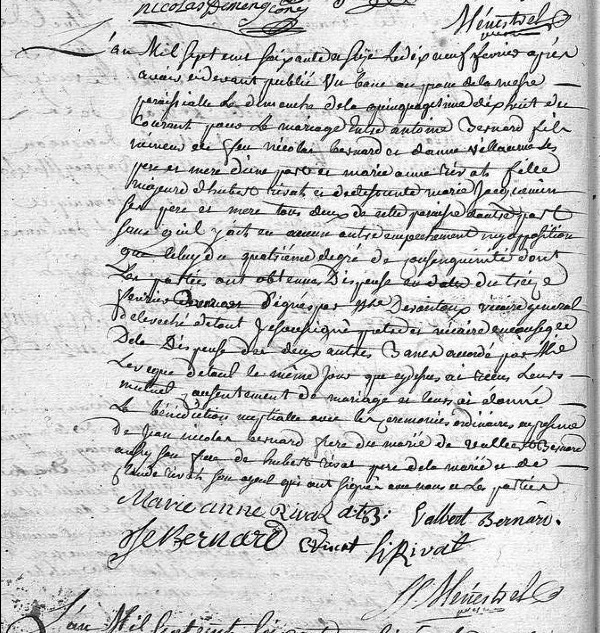 nicolas
Menestrel
L'an Mil Sept cent soixante et seize le dix neuf fevrier apres
avoir cidevant publié un banc au prone de la messe
paroissialle Le dimanche dela quinquagesime dixhuit du
Courant pour Le mariage Entre antoine Bernard fils
mineur de feu nicolas bernard et danne ses
pere et mere d'une part et marie anne rivat fille
majeure d'hubert rivat et de deffunte marie jacquemin
ses pere et mere tous deux de cette paroisse d'autre part
sans qu'il y ait eu aucun autre empechement ny opposition
que celuy du quatrième degré de consanguinité dont
Les parties ont obtenus Dispense en date du treize
fevrier signé par Mr vicaire general
de levéché de toul Je soussigné pretre et vicaire
Dela Dispense des deux autres Bancs accordé par Mr
Leveque de toul le même jour que cydessus ai recus Leurs
mutuel consentement de mariage et leurs ai donné
La bénédiction nuptialle avec les ceremonies ordinaires en presence
De Jean nicolas bernard frere du marié de Bernard
aussy son frere de hubert rivat pere dela mariée et de
Claude rivat son ayeul qui ont signés avec nous et Les parties
Marie anne Rivat Bernard.
Bernard Rivat
Menestrel
L'an Mil Sept cent